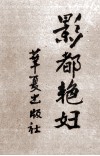 影都艳妇
华夏出版社